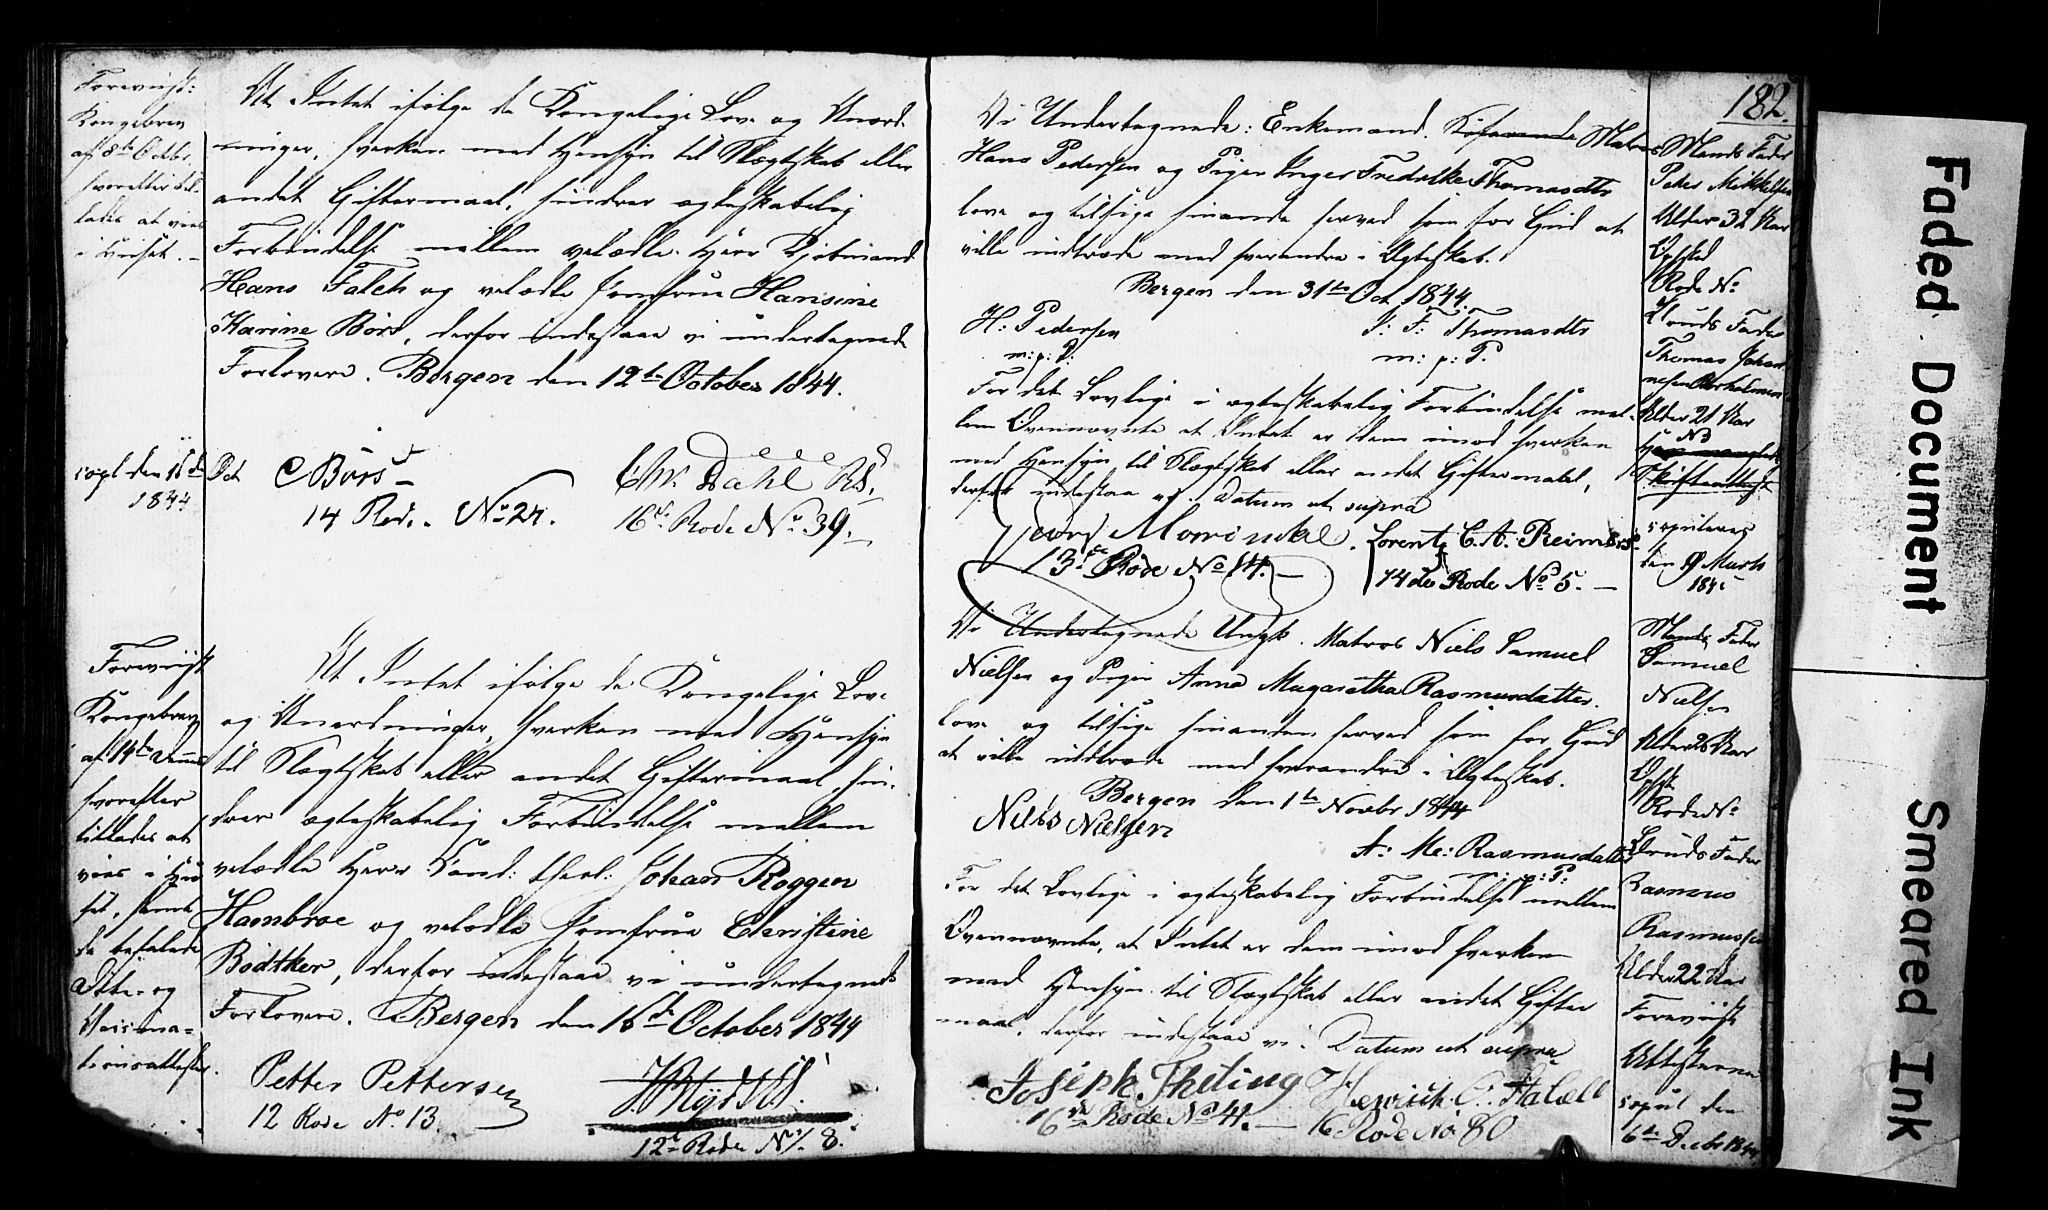 Foreviist:
Kongebrev
af 8de Octbr.
hvorefter til-
lades at vies
i Huset. -
At Intet ifølge de Kongelige Love og Anord-
ninger, hverken med Hensyn til Slægtskab eller
andet Giftermaal, hindrer ægteskabelig
Forbindelse mellem velædle Herr
Hans Falch og velædle Jomfrue Hansine
Karine Børs, derfor indestaae vi undertegnede
Forlovere. Bergen den 12te October 1844.
copl. den 15de Oct
1844
C Børs
14 Rode No 27.
Chr. Dahl RS.
16de Rode No 39.
Foreviist
Kongebrev
af 14de
hvorefter
tillades at
vies i Hu-
set, samt
de befalede
Døbe- og
Vaccina-
tionsattester.
At Intet ifølge de Kongelige Love
og Anordninger, hverken med Hensyn
til Slægtskab eller andet Giftermaal, hin-
drer ægteskabelig Forbindelse mellem
velædle Herr Cand: theol: Johan Roggen
Hambroe og velædle Jomfrue Christine
Bödtker, derfor indestaae vi undertegnede
Forlovere. Bergen den 16de October 1844
Petter Pettersen
12 Rode No 13.
12te Rode No 8.
182.
Vi Undertegnede: Enkemand. Søfarende Matros
Hans Pedersen og Pigen Inger Fredrikke Thomasdtr
love og tilsige hinanden herved som for Gud at
ville indtræde med hverandre i Ægteskab.
Bergen den 31te Oct. 1844.
H: Pedersen
m: p: P:
I: F: Thomasdtr
m: p: P.
For det Lovlige i ægteskabelig Forbindelse mel-
lem Ovennævnte at Intet er dem imod hverken
med Hensyn til Slægtskab eller andet Giftermaal,
derfor indestaa vi. Datum ut supra
Georg Mowinckel.
13de Rode No 14. -
Lorentz C. A. Reimers.
14de Rode No 5. -
Mands Fader
Peder Mikkelsen
Alder 32 Aar
Opsted
Rode No
Bruds Fader
Thomas Johan-
nesen
Alder 21 Aar
NB
Her mangler
Skifteattest
copuleres
den 9 Marts
1845
Vi Undertegnede Ungk. Matros Niels Samuel
Nielsen og Pigen Anna Magaretha Rasmusdatter.
love og tilsige hinanden herved som for Gud
at ville indtræde med hverandre i Ægteskab.
Bergen den 1te Novbr 1844
Niels Nielsen
A: M: Rasmusdatter
m: p: P:
For det Lovlige i ægteskabelig Forbindelse mellem
Ovennævnte, at Intet er dem imod hverken
med Hensyn til Slægtskab eller andet Gifter
maal, derfor indestaae vi. Datum ut supra
Joseph Thiling
16de Rode No 41. -
Henrich C:
16 Rode No 80
Mands Fader
Samuel
Nielsen
Alder 26 Aar
Opst.
Rode No
Bruds Fader
Rasmus
Rasmussen
Alder 22 Aar
Foreviist
Attesterne
copul den
6te Decbr 1844
Faded Document
Smeared Ink